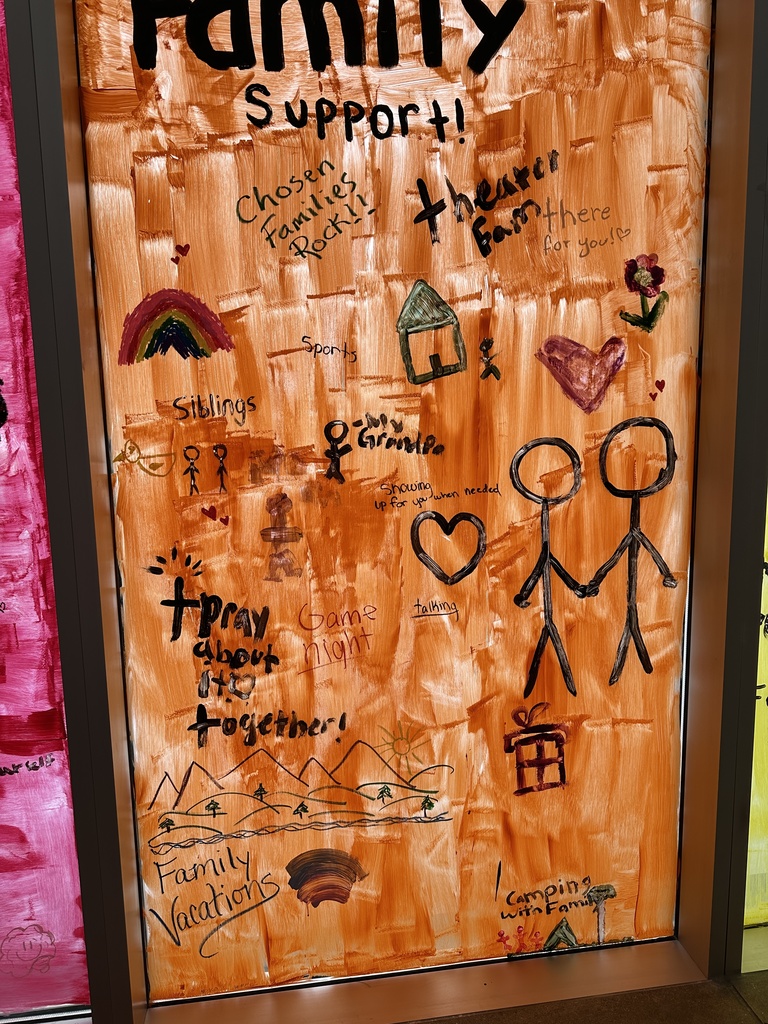 Family
Support!
Chosen
Families
Rock!!
theater
fam
there
for you!
Sports
Siblings
-My
Grandpa
Showing
up for you when needed
talking
pray
about
it
together!
Game
night
Family
Vacations
Camping
with Family